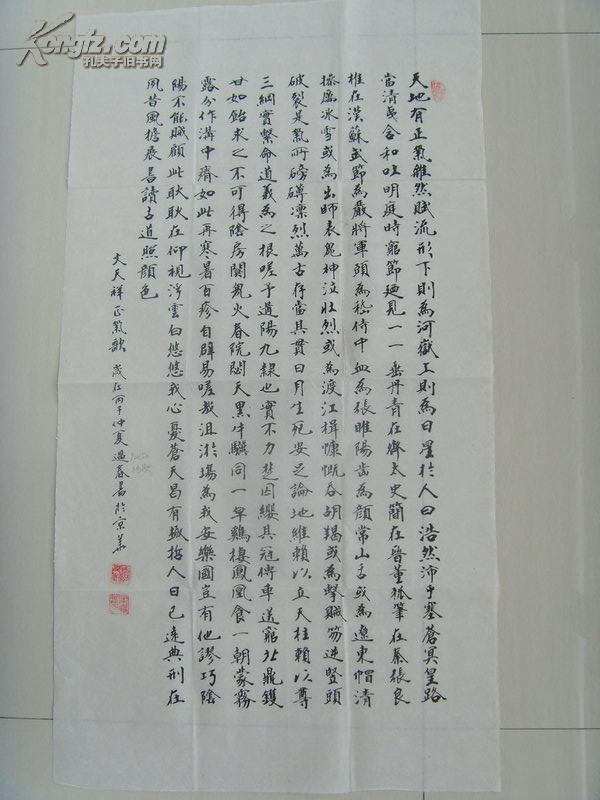 天地有正氣雜然賦流形下則為河嶽上則為日星於人曰浩然沛乎塞蒼冥皇路
當清夷含和吐明庭時窮節廼見一一垂丹青在齊太史簡在晉董狐筆在秦張良
椎在漢蘇武節為嚴將軍頭為嵇侍中血為張睢陽齒為顏常山舌或為遼東帽清
操厲冰雪或為出師表鬼神泣壯烈或為渡江楫慷慨吞胡羯或為擊賊笏逆豎頭
破裂是氣所磅礴凜烈萬古存當其貫日月生死安足論地維賴以立天柱賴以尊
三綱實繫命道義為之根嗟予遘陽九隸也實不力楚囚纓其冠傳車送窮北鼎鑊
甘如飴求之不可得陰房闃鬼火春院閟天黑牛驥同一皁鷄棲鳳凰食一朝蒙霧
露分作溝中瘠如此再寒暑百沴自辟易嗟哉沮洳場為我安樂國豈有他謬巧陰
陽不能賊顧此耿耿在仰視浮雲白悠悠我心憂蒼天曷有極哲人日已遠典刑在
夙昔風檐展書讀古道照顏色
文天祥正氣歌 歲在丙子仲夏 春書於京華
Kongfz.com
孔夫子旧书网